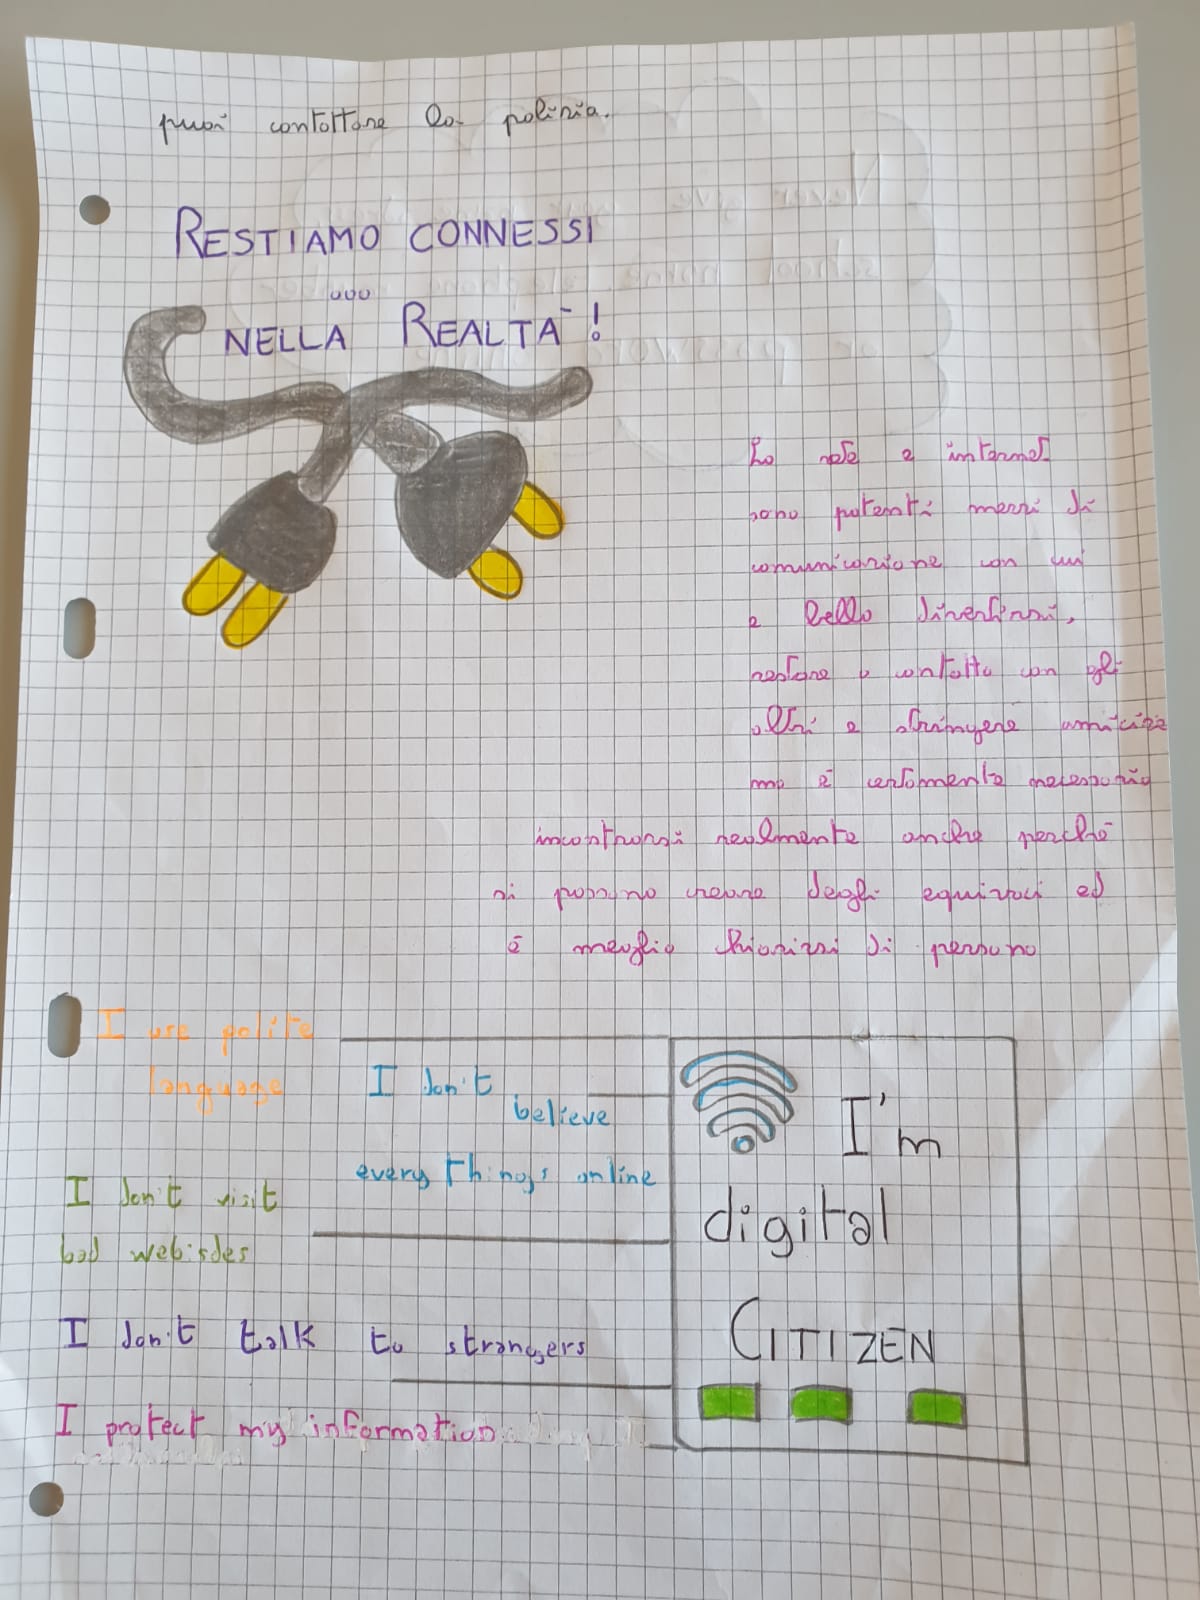 puoi contattare la polizia.
RESTIAMO CONNESSI
...
NELLA REALTÀ!
La rete e internet
sono potenti mezzi di
comunicazione con cui
è bello divertirsi,
restare a contatto con gli
altri e stringere amicizie
ma è certamente necessario
incontrarsi realmente anche perchè
si possono creare degli equivoci ed
è meglio chiarirsi di persona
I use polite
language
I don't
believe
every things online
I don't visit
bad webisdes
I don't talk to strangers
I protect my information
I'm
digital
CITIZEN